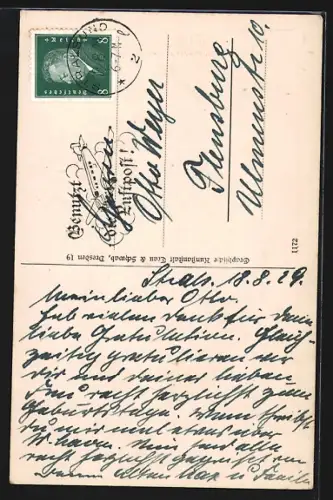 8 8
Deutsches
Benutzt
die
Luftpost!
Herrn
Otto Weyer
Flensburg
Ulmenstr. 10.
Graphische Kunstanstalt Trau & Schwab, Dresden 19
1172
Strals. 18.8.29.
Mein lieber Otto.
Hab vielen Dank für deine
liebe Gratulation. Gleich-
zeitig gratulieren wir
dir und deiner lieben
Frau recht herzlichst zum
Geburtstage. Wann schreibst
du mir mal etwas über
W'haven. Nun seid alle
recht herzlichst gegrüsst von
Deinem alten Max u Familie